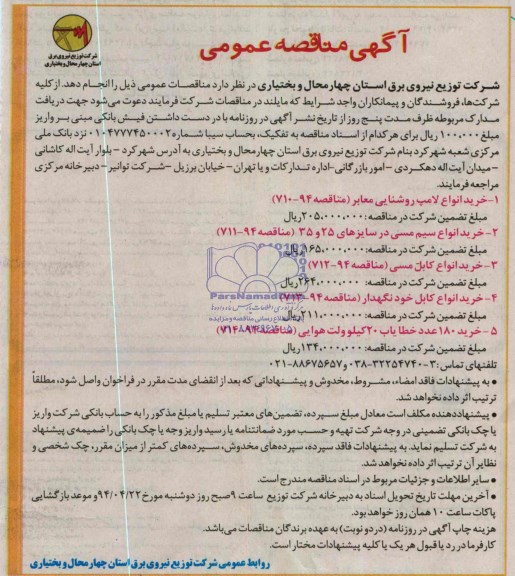 شرکت توزیع نیروی برق
استان چهارمحال و بختیاری
آگهی مناقصه عمومی
شرکت توزیع نیروی برق استان چهارمحال و بختیاری در نظر دارد مناقصات عمومی ذیل را انجام دهد. از کلیه
شرکت‌ها، فروشندگان و پیمانکاران واجد شرایط که مایلند در مناقصات شرکت فرمایند دعوت می‌شود جهت دریافت
مدارک مربوطه ظرف مدت پنج روز از تاریخ نشر آگهی در روزنامه با در دست داشتن فیش بانکی مبنی بر واریز
مبلغ ۱۰۰،۰۰۰ ریال برای هر کدام از اسناد مناقصه به تفکیک، بحساب سیبا شماره ۰۱۰۴۷۷۷۴۵۰۰۰۲ نزد بانک ملی
مرکزی شعبه شهرکرد بنام شرکت توزیع نیروی برق استان چهارمحال و بختیاری به آدرس شهرکرد - بلوار آیت اله کاشانی
-میدان آیت اله دهکردی - امور بازرگانی-اداره تدارکات و یا تهران - خیابان برزیل - شرکت توانیر- دبیرخانه مرکزی
مراجعه فرمایند.
۱-خرید انواع لامپ روشنایی معابر (مناقصه ۹۴-۷۱۰)
مبلغ تضمین شرکت در مناقصه: ۲۰۵،۰۰۰،۰۰۰ ریال
۲-خرید انواع سیم مسی در سایزهای ۲۵ و ۳۵ (مناقصه ۹۴-۷۱۱)
مبلغ تضمین شرکت در مناقصه: ۱۶۵،۰۰۰،۰۰۰ ریال
۳-خرید انواع کابل مسی (مناقصه ۹۴-۷۱۲)
مبلغ تضمین شرکت در مناقصه: ۲۶۴،۰۰۰،۰۰۰ ریال
۴-خرید انواع کابل خودنگهدار (مناقصه ۹۴-۷۱۳)
ParsNamadData
مبلغ تضمین شرکت در مناقصه: ۲۱۱،۰۰۰،۰۰۰ ریال
۵-خرید ۱۸۰ عدد خطا یاب ۲۰ کیلو ولت هوایی (مناقصه ۹۴-۷۱۴)
مبلغ تضمین شرکت در مناقصه: ۱۳۴،۰۰۰،۰۰۰ ریال
تلفنهای تماس: ۳-۳۲۲۵۴۷۴۰-۰۳۸ و ۸۸۶۷۵۶۵۷-۰۲۱
• به پیشنهادات فاقد امضاء، مشروط، مخدوش و پیشنهاداتی که بعد از انقضای مدت مقرر در فراخوان واصل شود، مطلقاً
ترتیب اثر داده نخواهد شد.
• پیشنهاددهنده مکلف است معادل مبلغ سپرده، تضمین‌های معتبر تسلیم یا مبلغ مذکور را به حساب بانکی شرکت واریز
یا چک بانکی تضمینی در وجه شرکت تهیه و حسب مورد ضمانتنامه یا رسید واریز وجه یا چک بانکی را ضمیمه‌ی پیشنهاد
به شرکت تسلیم نماید. به پیشنهادات فاقد سپرده، سپرده‌های مخدوش، سپرده‌های کمتر از میزان مقرر، چک شخصی و
نظایر آن ترتیب اثر داده نخواهد شد.
• سایر اطلاعات و جزئیات مربوط در اسناد مناقصه مندرج است.
• آخرین مهلت تاریخ تحویل اسناد به دبیرخانه شرکت توزیع ساعت ۹ صبح روز دوشنبه مورخ ۹۴/۰۴/۲۲ و موعد بازگشایی
پاکات ساعت ۱۰ همان روز خواهد بود.
هزینه چاپ آگهی در روزنامه (در دو نوبت) به عهده برندگان مناقصات می‌باشد.
کارفرما در رد یا قبول هر یک یا کلیه پیشنهادات مختار است.
روابط عمومی شرکت توزیع نیروی برق استان چهارمحال و بختیاری